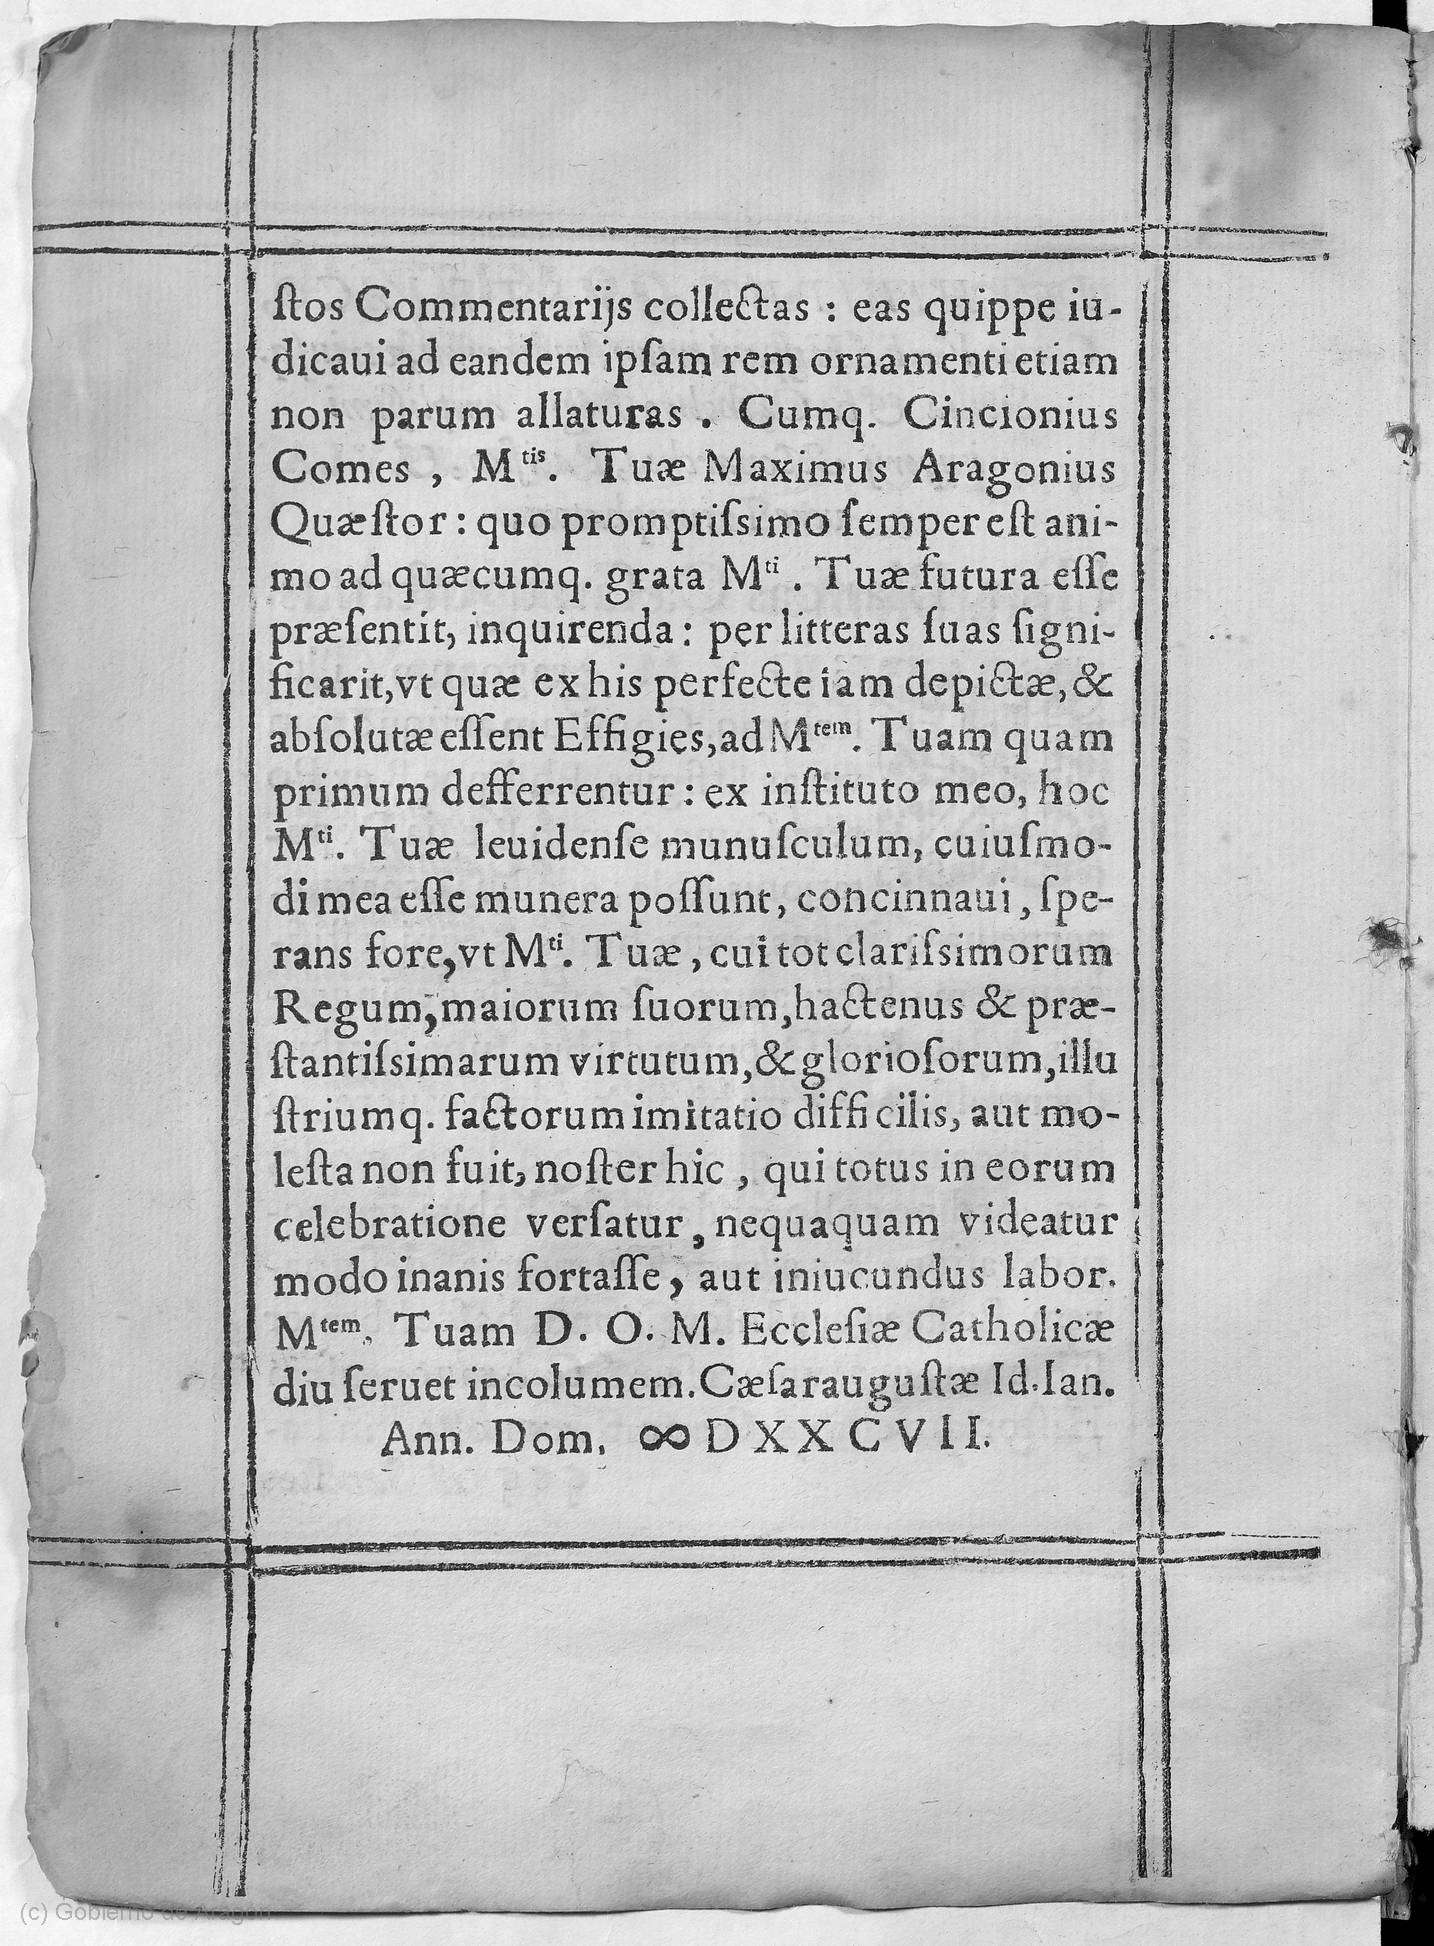 ſtos Commentarijs collectas : eas quippe iu-
dicaui ad eandem ipſam rem ornamenti etiam
non parum allaturas . Cumq. Cincionius
Comes , Mtis. Tuæ Maximus Aragonius
Quæſtor : quo promptiſsimo ſemper eſt ani-
mo ad quæcumq. grata Mti . Tuæ futura eſſe
præſentit, inquirenda : per litteras ſuas ſigni-
ficarit, vt quæ ex his perfecte iam depictæ, &
abſolutæ eſſent Effigies, ad Mtem. Tuam quam
primum defferrentur : ex inſtituto meo, hoc
Mti. Tuæ leuidenſe munuſculum, cuiuſmo-
di mea eſſe munera poſſunt, concinnaui , ſpe-
rans fore, vt Mti. Tuæ , cui tot clariſsimorum
Regum, maiorum ſuorum, hactenus & præ-
ſtantiſsimarum virtutum, & glorioſorum, illu
ſtriumq. factorum imitatio difficilis, aut mo-
leſta non fuit, noſter hic , qui totus in eorum
celebratione verſatur , nequaquam videatur
modo inanis fortaſſe , aut iniucundus labor.
Mtem. Tuam D. O. M. Eccleſiæ Catholicæ
diu ſeruet incolumem. Cæſarauguſtæ Id. Ian.
Ann. Dom. ∞ D X X C V I I.
(c) Gobierno de Aragón